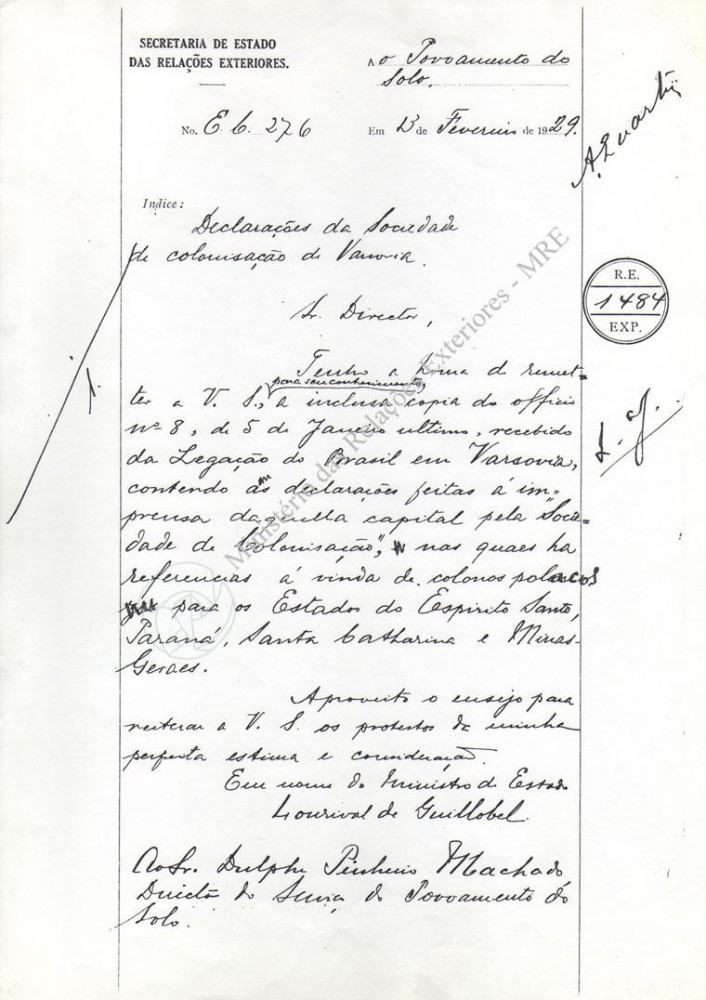 SECRETARIA DE ESTADO
DAS RELAÇÕES EXTERIORES.
A o Povoamento do
Solo.
No. E. C. 276
Em 13 de Fevereiro de 1929.
Indice:
Declarações da Sociedade
de colonisação de Varsovia.
R.E.
1484
EXP.
Sr. Director,
Tenho a honra de remet=
para seu conhecimento,
ter a V. S., a inclusa copia do officio
nº 8, de 5 de Janeiro ultimo, recebido
da Legação do Brasil em Varsovia,
contendo as declarações feitas á im=
prensa daquella capital pela "Socie=
dade de Colonisação", nas quaes ha
referencias á vinda de colonos polacos
para os Estados do Espirito Santo,
Paraná, Santa Catharina e Minas-
Geraes.
Aproveito o ensejo para
reiterar a V. S. os protestos da minha
perfeita estima e consideração.
Em nome do Ministro de Estado
Lourival de Guillobel.
Ao Sr. Dulphe Pinheiro Machado
Director do Serviço do Povoamento do
Solo.
Ministério das Relações Exteriores - MRE